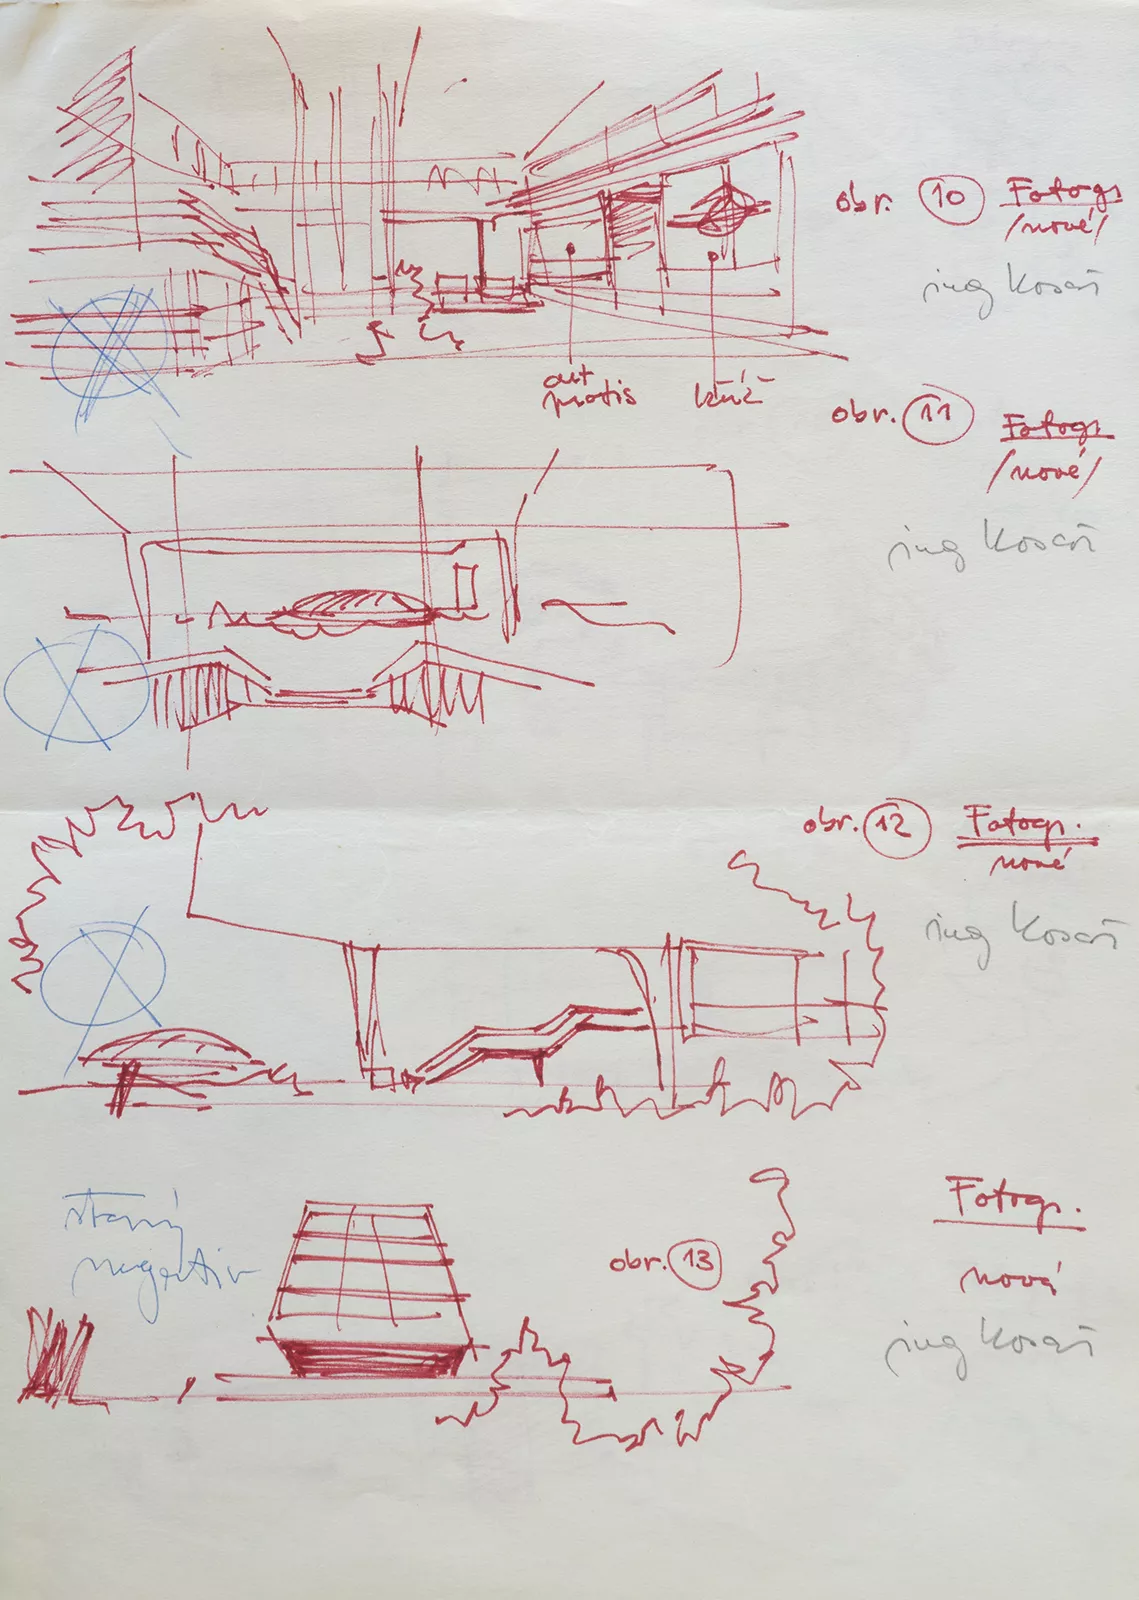 obr. 10 Fotogr.
/nové/
ing Kosař
art
protis
kříž
obr. 11 Fotogr.
/nové/
ing Kosař
obr. 12 Fotogr.
nové
ing Kosař
starý
negativ
obr. 13
Fotogr.
nová
ing Kosař